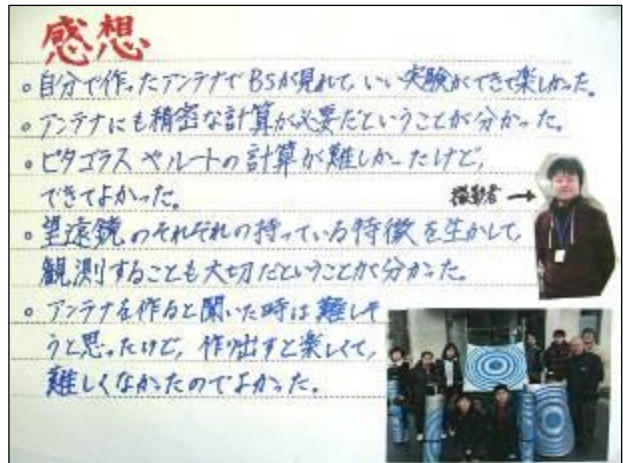 感想
。自分で作ったアンテナでBSが見れて、いい実験ができて楽しかった。
。アンテナにも精密な計算が必要だということが分かった。
。ピタゴラスやルートの計算が難しかったけど、
できてよかった。
撮影者→
。望遠鏡のそれぞれの持っている特徴を生かして、
観測することも大切だということが分かった。
。アンテナを作ると聞いた時は難しそ
うと思ったけど、作り出すと楽しくて、
難しくなかったのでよかった。